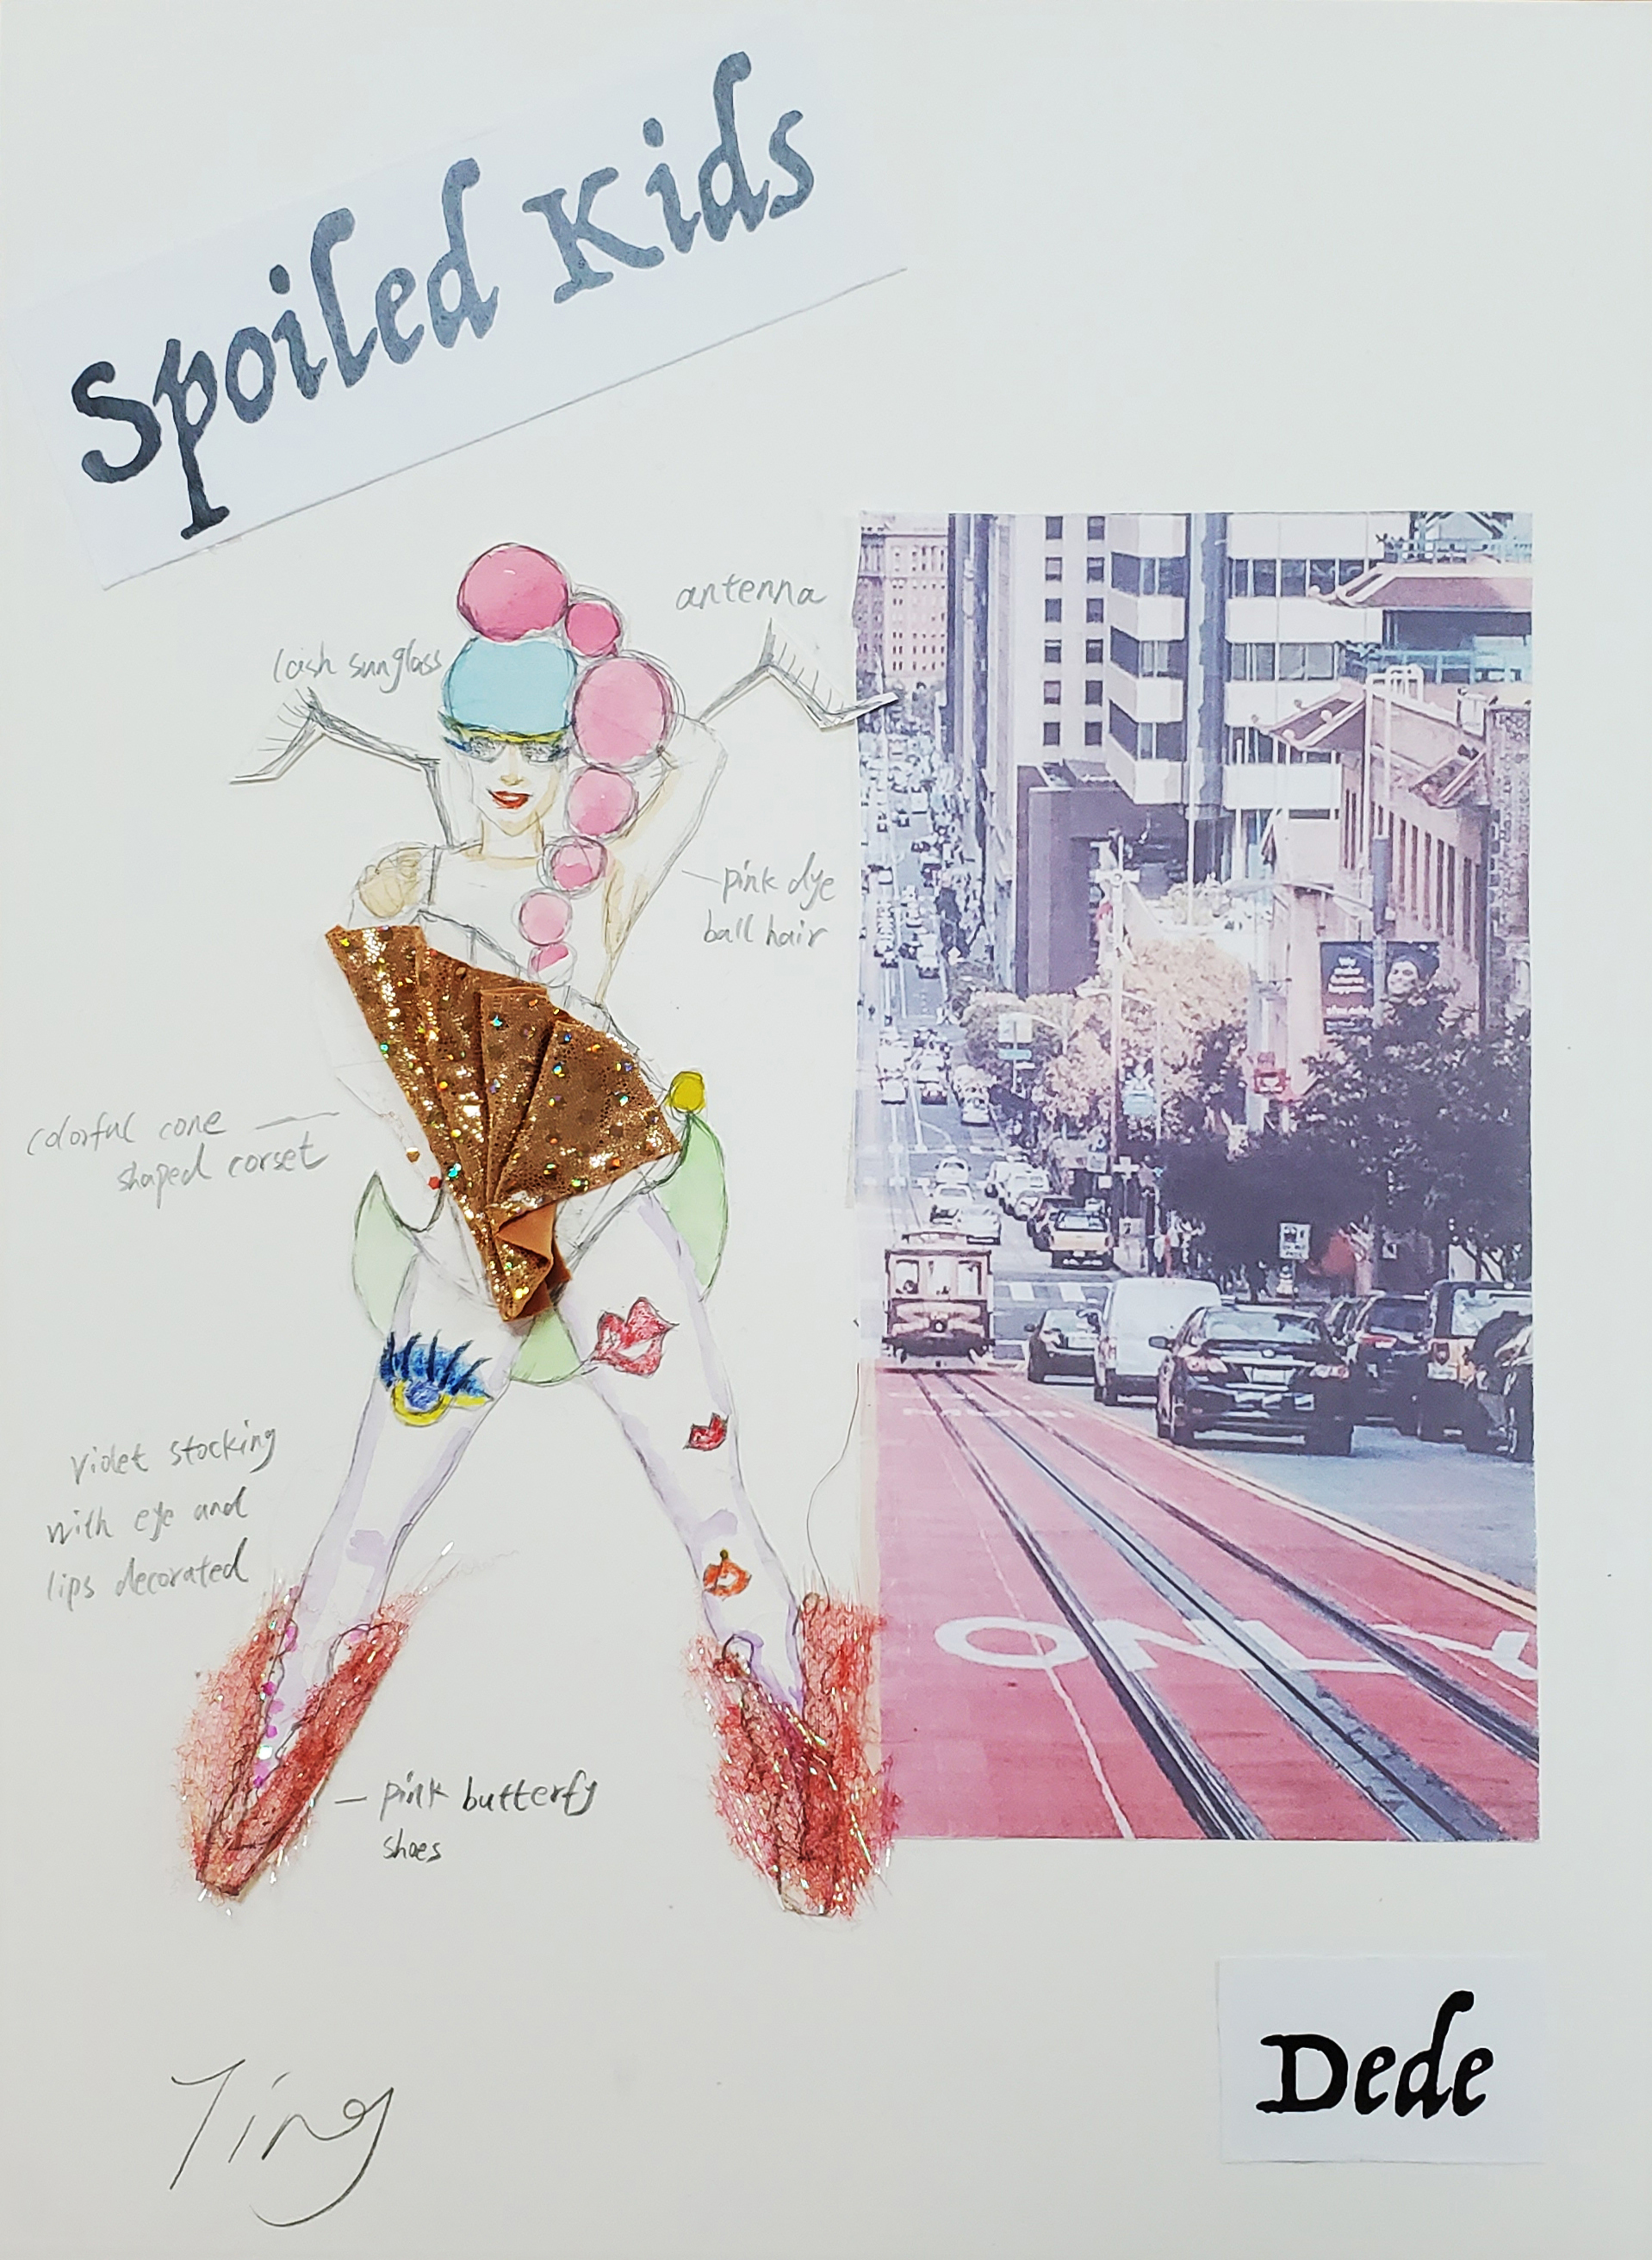 Spoiled Kids
antenna
lash sunglass
pink dye
ball hair
colorful cone
shaped corset
violet stocking
with eye and
lips decorated
ONLY
pink butterfy
shoes
Dede
Ting